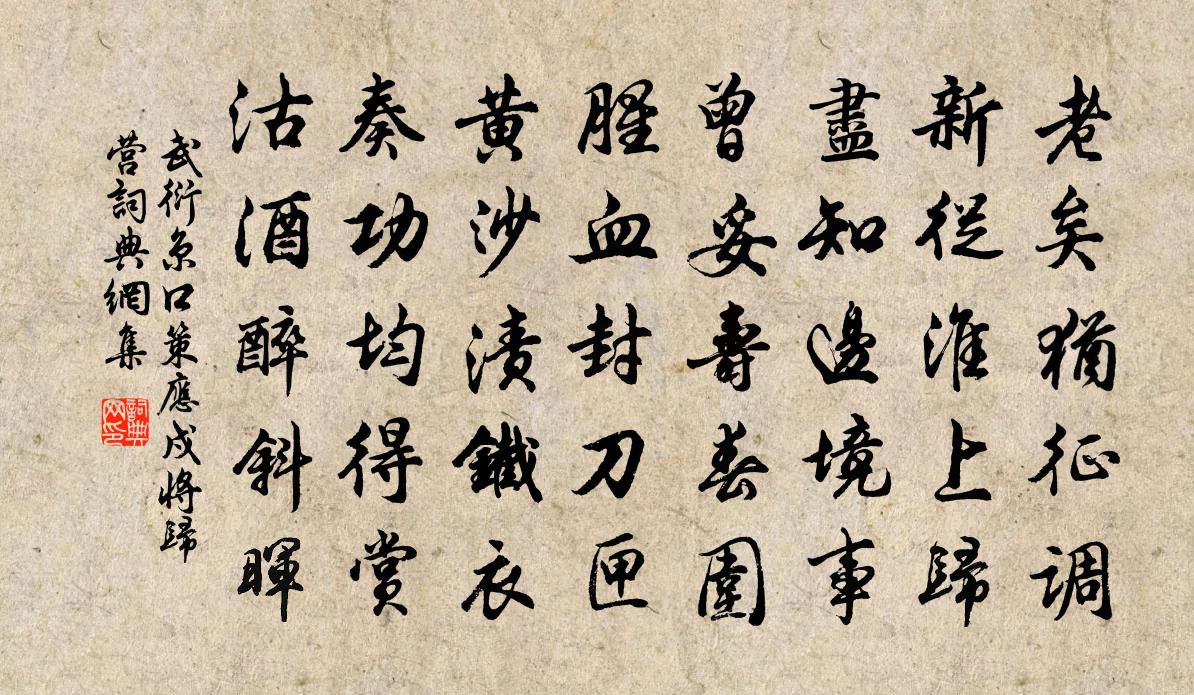 老矣猶征調
新從淮上歸
盡知邊境事
曾妥壽春圍
腥血封刀匣
黄沙漬鐵衣
奏功均得賞
沽酒醉斜暉
武衍京口策應戍將歸
營詞典網集
詞典
网印